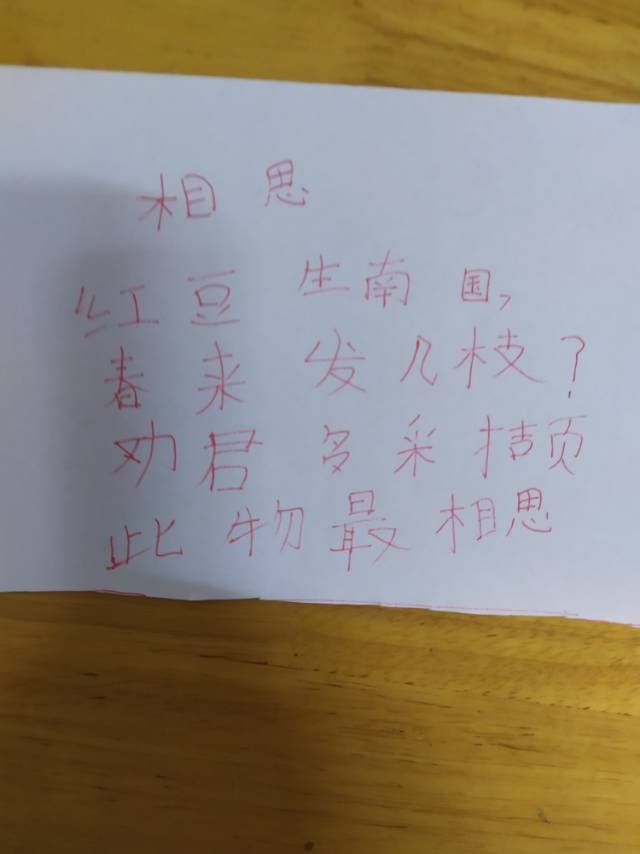 相思
红豆生南国,
春来发几枝?
劝君多采拮页
此物最相思